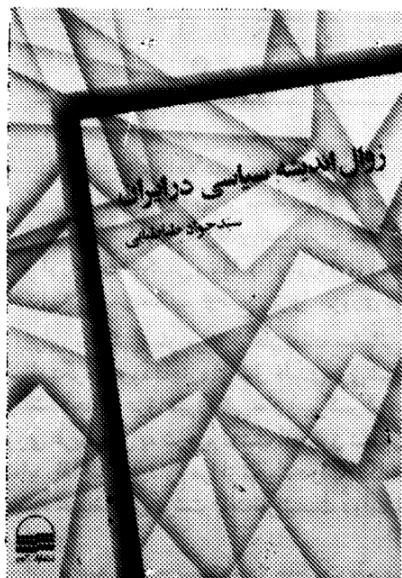 زوال اندیشه سیاسی در ایران
سید جواد طباطبایی